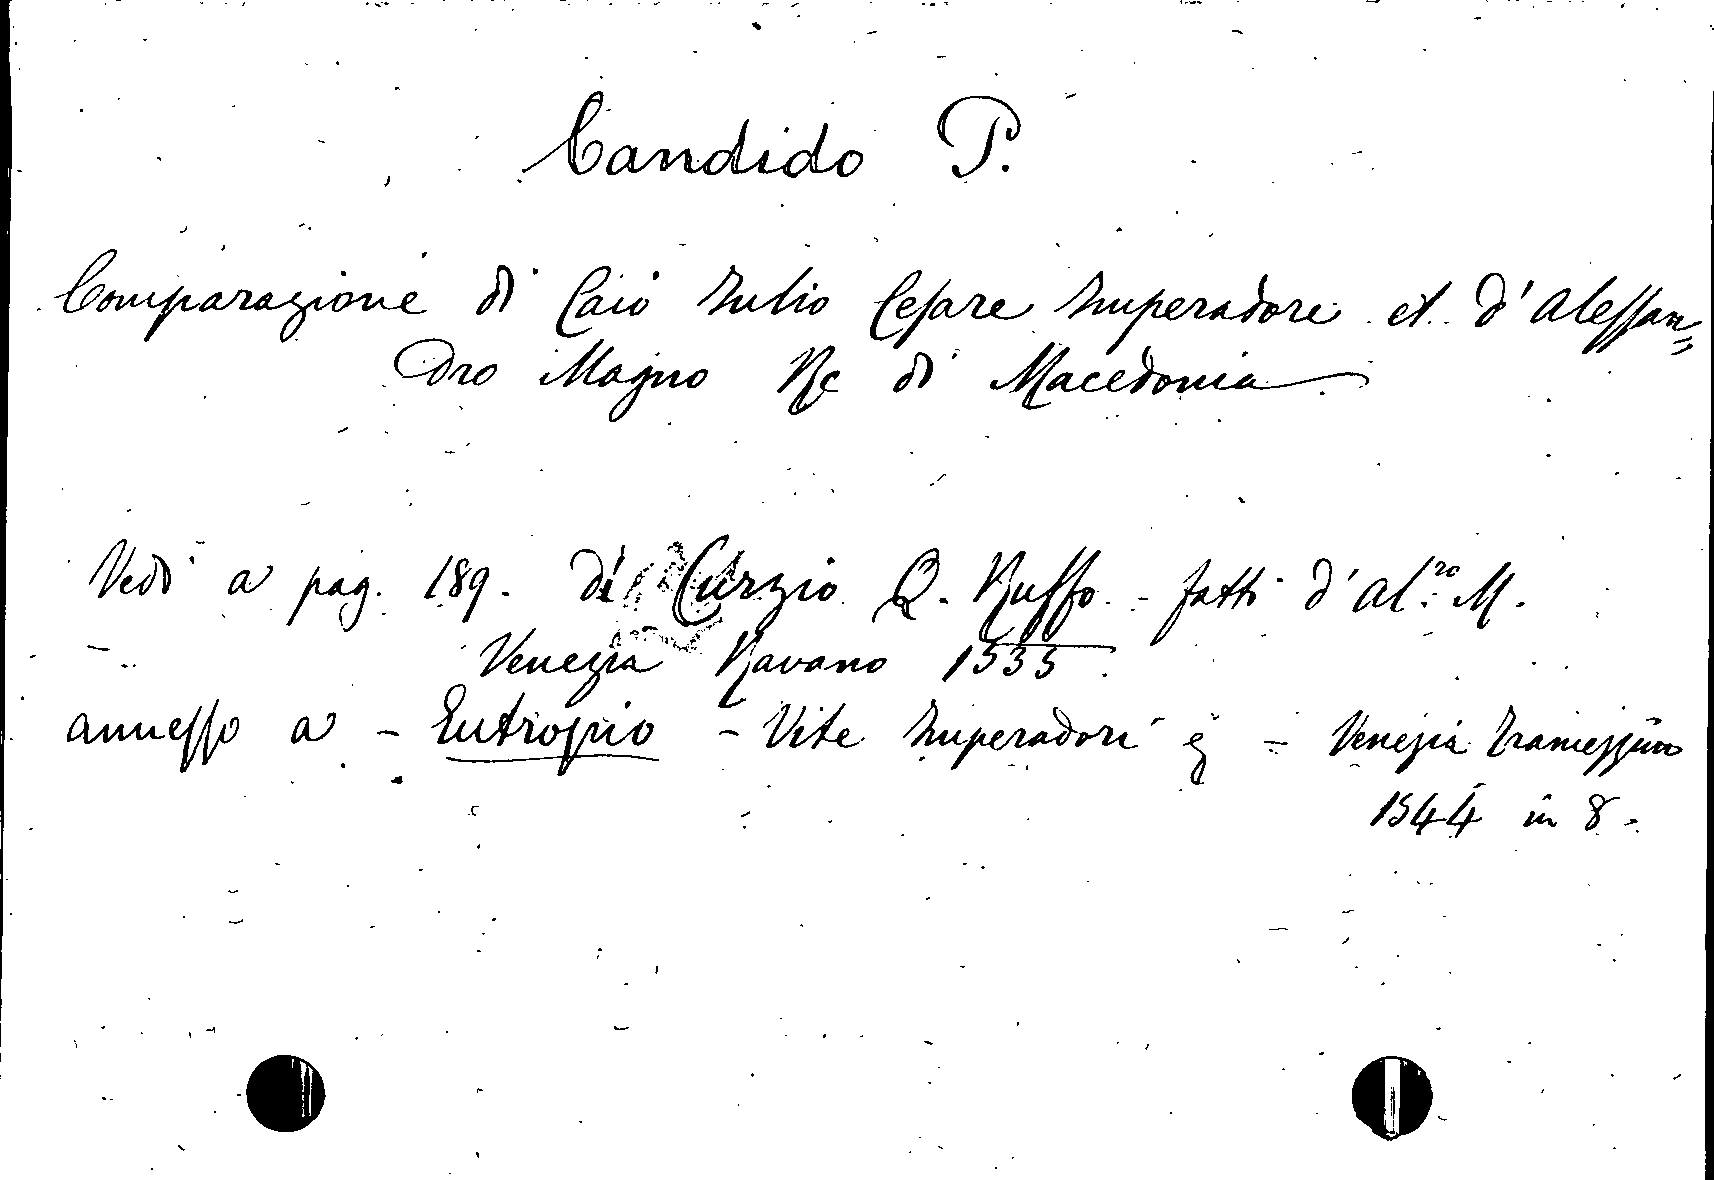 Candido P.
Comparazione di Caio Iulio Cesare Imperadore et d'Alessan=
dro Magno Re di Macedonia
Vedi a pag. 189. di Curzio Q. Ruffo - fatti d'Al.ro M.
Venezia Navano 1535.
annesso a - Eutropio - Vite Imperadori & - Venezia Tramezzino
1544 in 8.